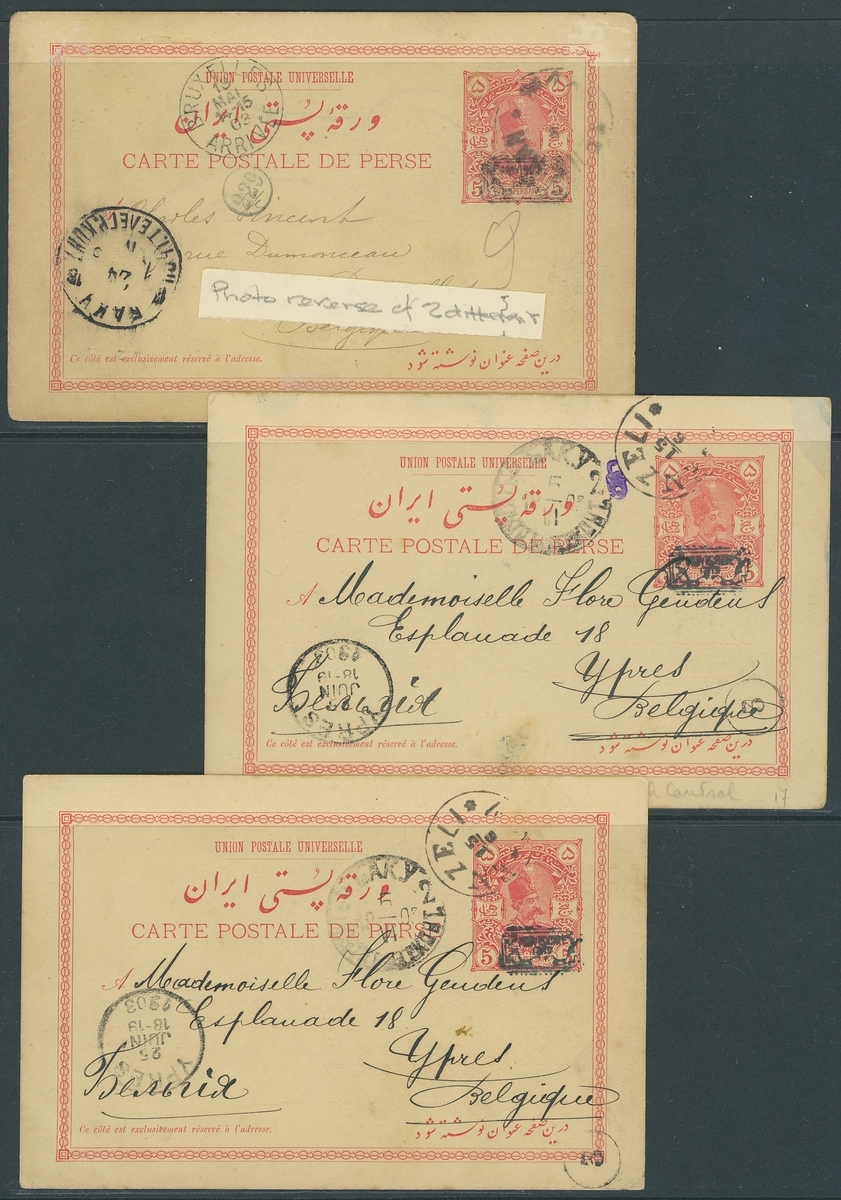 UNION POSTALE UNIVERSELLE
ورقهٔ پستی ایران
CARTE POSTALE DE PERSE
BRUXELLES
MAI
ARRIVÉE
5
A Charles Vincent
rue Dumonceau
Photo reverse of 2 different
Belgique
Ce côté est exclusivement réservé à l'adresse.
درین صفحه عنوان نوشته شود
UNION POSTALE UNIVERSELLE
ورقهٔ پستی ایران
CARTE POSTALE DE PERSE
۵ ۵
5 5
A Mademoiselle Flore Gendens
Esplanade 18
Ypres
Бельгія
Belgique
YPRES
JUIN
18-19
1903
Ce côté est exclusivement réservé à l'adresse.
درین صفحه عنوان نوشته شود
Central
17
UNION POSTALE UNIVERSELLE
ورقهٔ پستی ایران
CARTE POSTALE DE PERS
۵ ۵
5 5
A Mademoiselle Flore Gendens
Esplanade 18
Ypres
Бельгія
Belgique
YPRES
25
JUIN
18-19
1903
Ce côté est exclusivement réservé à l'adresse.
درین صفحه عنوان نوشته شود